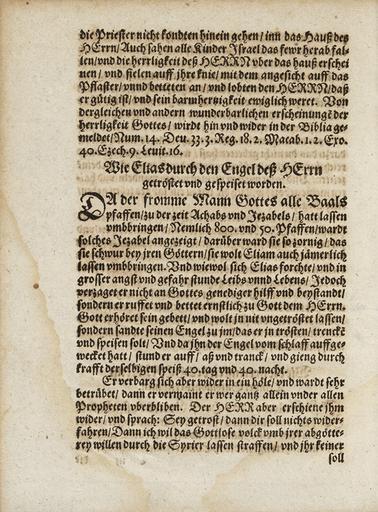 die Priester nicht kondten hinein gehen / inn das Hauß des
HErrn / Auch sahen alle Kinder Jsrael das fewr herab fal-
len / vnd die herrligkeit deß HERRN vber das hauß erschei
nen / vnd fielen auff jhre knie / mit dem angesicht auff das
Pflaster / vnnd betteten an / vnd lobten den HERRN / daß
er gütig ist / vnd sein barmhertzigkeit ewiglich weret. Von
dergleichen vnd andern wunderbarlichen erscheinungē der
herrligkeit Gottes / wirdt hin vnd wider in der Biblia ge-
meldet / Num. 14. Deu. 33. 3. Reg. 18. 2. Macab. 1. 2. Exo.
40. Ezech. 9. Leuit. 16.
Wie Elias durch den Engel deß HErrn
getröstet vnd gespeiset worden.
DA der fromme Mann Gottes alle Baals
pfaffen / zu der zeit Achabs vnd Jezabels / hatt lassen
vmbbringen / Nemlich 800. vnd 50. Pfaffen / wardt
solches Jezabel angezeigt / darüber ward sie so zornig / das
sie schwur bey jren Göttern / sie wolt Eliam auch jämerlich
lassen vmbbringen. Vnd wiewol sich Elias forchte / vnd in
grosser angst vnd gefahr stunde Leibs vnnd Lebens / Jedoch
verzaget er nicht an Gottes genediger hilff vnd beystandt /
sondern er ruffet vnd bettet ernstlich zu Gott dem HErrn.
Gott erhöret sein gebett / vnd wolt jn nit vngetröstet lassen /
sondern sandte seinen Engel zu jm / das er in trösten / trenckē
vnd speisen solt / Vnd da jhn der Engel vom schlaff auffge-
wecket hatt / stund er auff / aß vnd tranck / vnd gieng durch
krafft derselbigen speiß 40. tag vnd 40. nacht.
Er verbarg sich aber wider in ein höle / vnd wardt sehr
betrübet / dann er vermaint er wer gantz allein vnder allen
Propheten vberbliben. Der HERR aber erschiene jhm
wider / vnd sprach: Sey getrost / dann dir soll nichts wider-
fahren / Dann ich wil das Gottlose volck vmb jrer abgötte-
rey willen durch die Syrier lassen straffen / vnd jhr keiner
soll